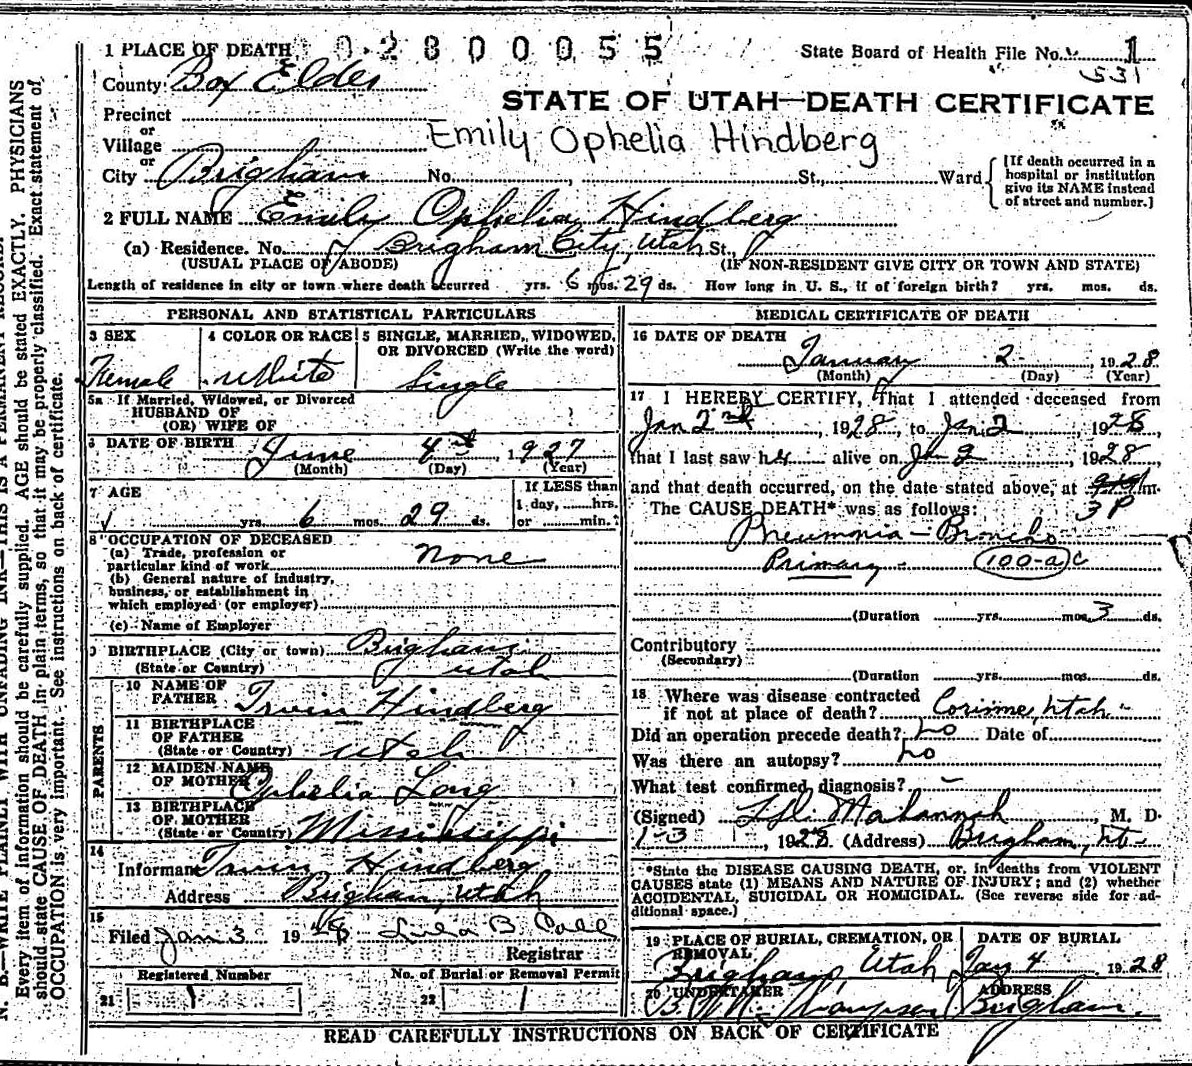 1 PLACE OF DEATH 0 2 8 0 0 0 5 5 State Board of Health File No. 1
531
County Box Elder
STATE OF UTAH—DEATH CERTIFICATE
Precinct
or
Village
Emily Ophelia Hindberg
or
City Brigham No. St., Ward
[If death occurred in a
hospital or institution
give its NAME instead
of street and number.]
2 FULL NAME Emily Ophelia Hindberg
(a) Residence. No. Brigham City, Utah St.,
(USUAL PLACE OF ABODE) (IF NON-RESIDENT GIVE CITY OR TOWN AND STATE)
Length of residence in city or town where death occurred yrs. 6 mos. 29 ds. How long in U. S., if of foreign birth? yrs. mos. ds.
PERSONAL AND STATISTICAL PARTICULARS
3 SEX
Female
4 COLOR OR RACE
White
5 SINGLE, MARRIED, WIDOWED,
OR DIVORCED (Write the word)
Single
5a If Married, Widowed, or Divorced
HUSBAND OF
(OR) WIFE OF
6 DATE OF BIRTH June 4th, 1927
(Month) (Day) (Year)
7 AGE
yrs. 6 mos. 29 ds.
If LESS than
1 day, hrs.
or min.?
8 OCCUPATION OF DECEASED
(a) Trade, profession or
particular kind of work None
(b) General nature of industry,
business, or establishment in
which employed (or employer)
(c) Name of Employer
9 BIRTHPLACE (City or town) Brigham
(State or Country) Utah
PARENTS
10 NAME OF
FATHER Irwin Hindberg
11 BIRTHPLACE
OF FATHER
(State or Country) Utah
12 MAIDEN NAME
OF MOTHER Ophelia Long
13 BIRTHPLACE
OF MOTHER
(State or Country) Mississippi
14
Informant Irwin Hindberg
Address Brigham, Utah
15
Filed Jan 3 1928
Registrar
Registered Number No. of Burial or Removal Permit
21 1 22 1
MEDICAL CERTIFICATE OF DEATH
16 DATE OF DEATH
January 2 1928
(Month) (Day) (Year)
17 I HEREBY CERTIFY, That I attended deceased from
Jan 2nd, 1928, to Jan 2, 1928,
that I last saw her alive on Jan 2, 1928
and that death occurred, on the date stated above, at m.
3 P
The CAUSE DEATH* was as follows:
Pneumonia - Broncho
Primary - 100-a C
(Duration yrs. mos. 3 ds.
Contributory
(Secondary)
(Duration yrs. mos. ds.
18 Where was disease contracted
if not at place of death? Corinne, Utah
Did an operation precede death? No Date of
Was there an autopsy? No
What test confirmed diagnosis? –
(Signed) M. D.
1-3, 1928. (Address) Brigham, Ut
*State the DISEASE CAUSING DEATH, or, in deaths from VIOLENT
CAUSES state (1) MEANS AND NATURE OF INJURY; and (2) whether
ACCIDENTAL, SUICIDAL OR HOMICIDAL. (See reverse side for ad-
ditional space.)
19 PLACE OF BURIAL, CREMATION, OR
REMOVAL
Brigham, Utah
DATE OF BURIAL
Jan 4 1928
20 UNDERTAKER
Thompson
ADDRESS
Brigham.
READ CAREFULLY INSTRUCTIONS ON BACK OF CERTIFICATE
N. B.—WRITE PLAINLY WITH UNFADING INK—THIS IS A PERMANENT RECORD.
Every item of information should be carefully supplied. AGE should be stated EXACTLY. PHYSICIANS
should state CAUSE OF DEATH in plain terms, so that it may be properly classified. Exact statement of
OCCUPATION is very important. See instructions on back of certificate.